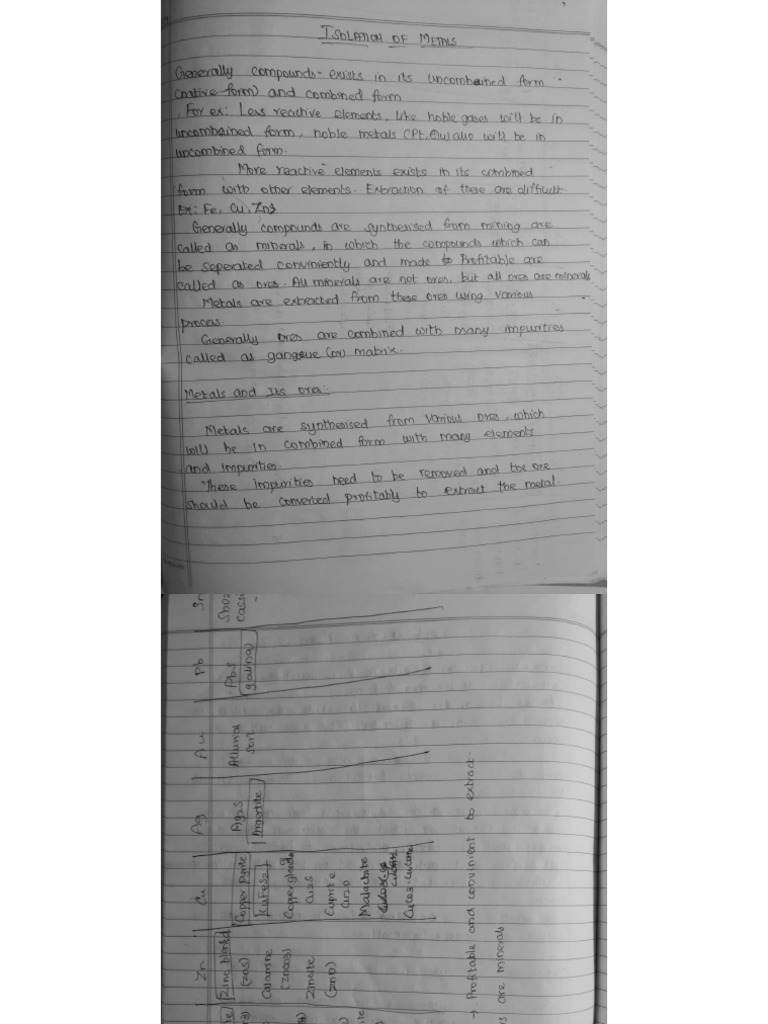 ISOLATION OF METALS
Generally compounds - exists in its uncombained form
(native form) and combined form
For ex: Less reactive elements, like noble gases will be in
uncombained form, noble metals (Pt, Au) also will be in
uncombined form.
More reactive elements exists in its combined
form with other elements. Extraction of these are difficult.
Ex: Fe, Cu, Zng
Generally compounds are synthesised from mining are
called as minerals, in which the compounds which can
be seperated conviniently and made to Profitable are
called as ores. All minerals are not ores, but all ores are minerals
Metals are extracted from these ores using various
process.
Generally ores are combined with many impurities
called as gangue (or) matrix.
Metals and Its ores:
Metals are synthesised from various ores, which
will be in combined form with many elements
and impurities.
These impurities need to be removed and the ore
should be converted profitably to extract the metal.
Zn Cu Ag Au Pb Sn
Zinc blend
(ZnS)
Calamine
(ZnCO3)
Zincite
(ZnO)
Copper Pyrite
(CuFeS2)
Copper glance
Cu2S
Cuprite
Cu2O
Malachite
Ag2S
Argentite
Alluvial
soil
PbS
(galina)
SnO2
cassi
→ Profitable and convinient to extract.
s are minerals